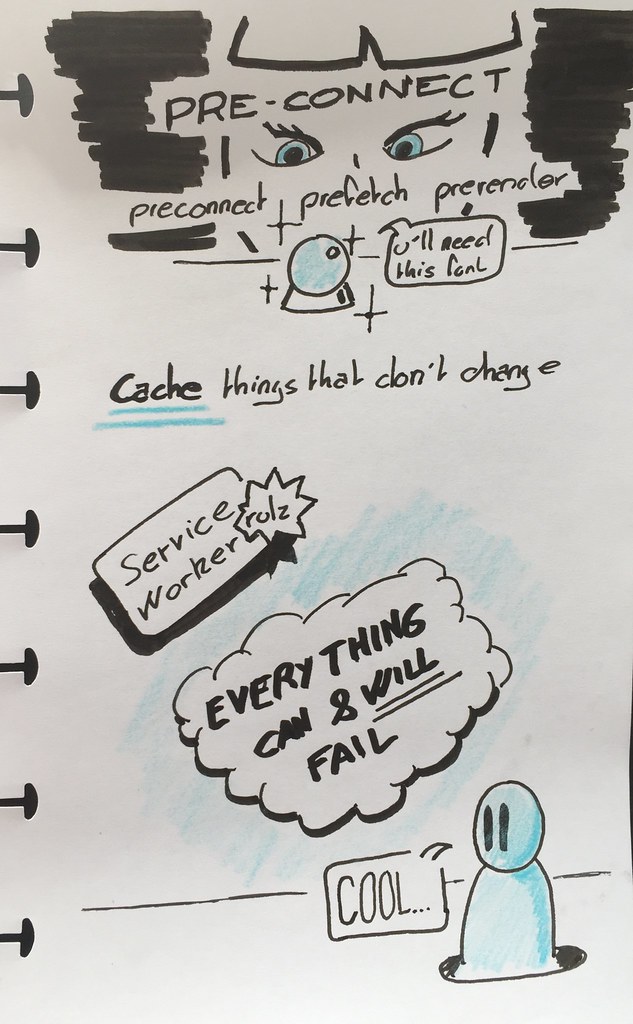 PRE-CONNECT
preconnect prefetch prerender
u'll need
this font
Cache things that don't change
Service
Worker
rulz
EVERYTHING
CAN & WILL
FAIL
COOL...